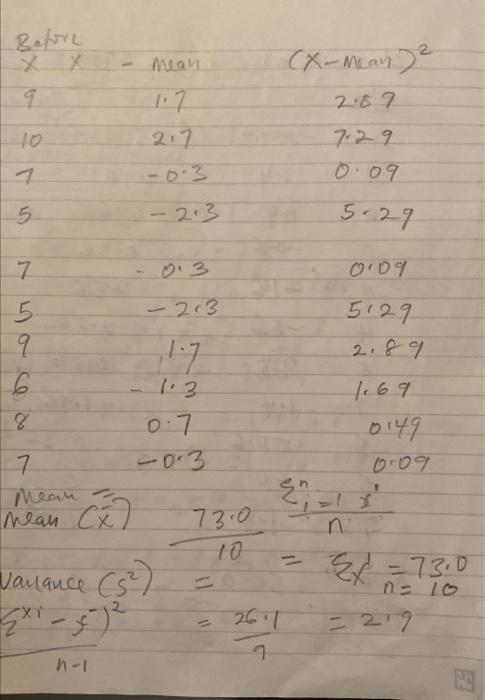 Before
X X - Mean (X-Mean)²
9 1.7 2.89
10 2.7 7.29
7 -0.3 0.09
5 -2.3 5.29
7 -0.3 0.09
5 -2.3 5.29
9 1.7 2.89
6 -1.3 1.69
8 0.7 0.49
7 -0.3 0.09
Mean =
Mean (x̄) 73.0/10 = Σⁿi=1 / n
Σx = 73.0
n = 10
Variance (S²) =
Σxi - )² / n-1 = 26.1/9 = 2.9